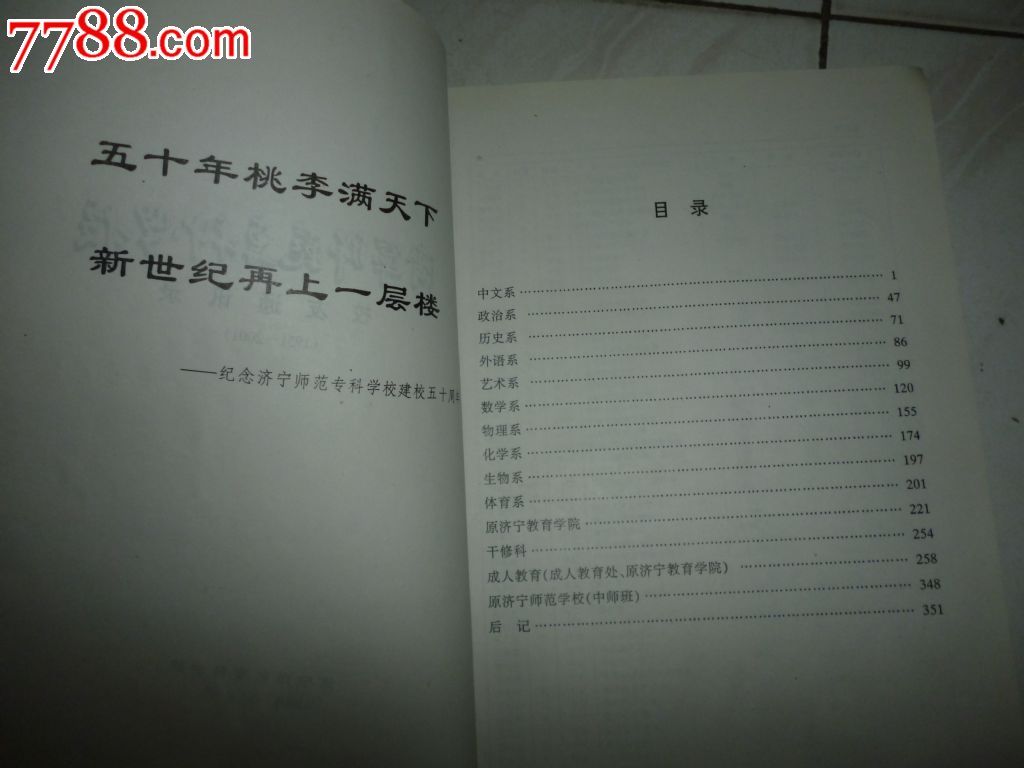 7788.com
五十年桃李满天下
新世纪再上一层楼
——纪念济宁师范专科学校建校五十周年
目 录
中文系 …… 1
政治系 …… 47
历史系 …… 71
外语系 …… 86
艺术系 …… 99
数学系 …… 120
物理系 …… 155
化学系 …… 174
生物系 …… 197
体育系 …… 201
原济宁教育学院 …… 221
干修科 …… 254
成人教育(成人教育处、原济宁教育学院) …… 258
原济宁师范学校(中师班) …… 348
后 记 …… 351